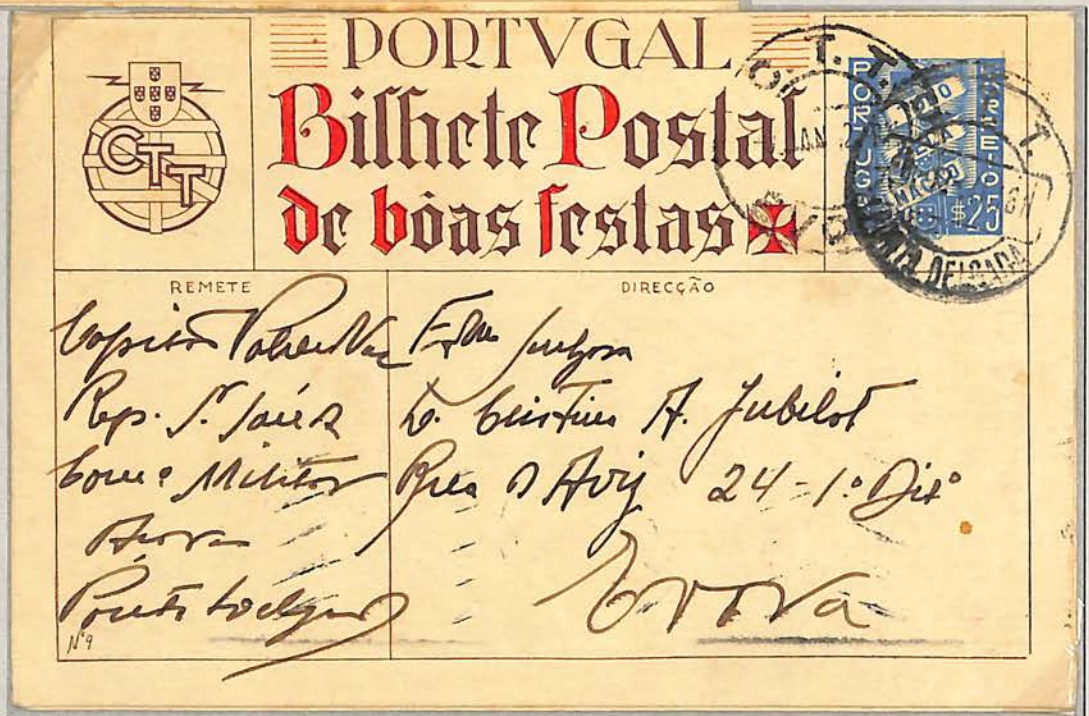 PORTVGAL
Bilhete Postal
de bôas festas
CTT
PORTUGAL
CORREIO
$25
C. T. T.
JAN
PONTA DELGADA
REMETE
DIRECÇÃO
Capitão
Rep. S. Saúde
Comº Militar
Açores
Ponta Delgada
Nº 9
Exma Senhora
D. Cristina A. Jubilot
Rua d Aviz 24-1º Dtº
Evora